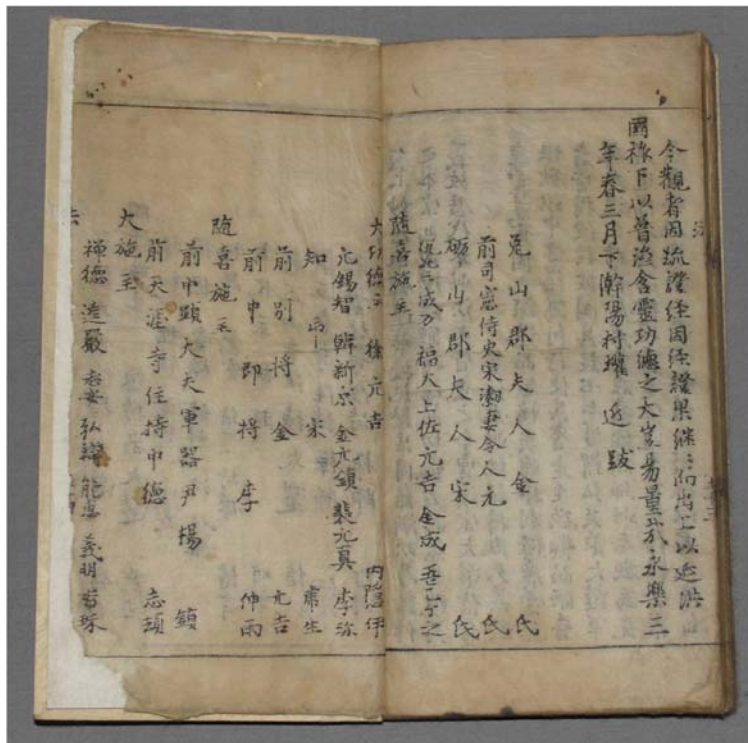 今觀者因疏證経因経證果継〻而出之以延洪
國祚下以普洽含靈功德之大豈易量哉永樂三
年春三月下澣陽村權近跋
兎山郡夫人金氏
前司憲侍史宋淑妻令人元氏
礪山郡夫人宋氏
成万福大上佐元吉金成吾乙丁之
隨喜施主
大功德主徐元吉內隱伊
元錫智金元鎮裴元真李弥
知宋席生
前別將金元吉
前中郎將李仲雨
隨喜施主
前中顕大夫軍器尹楊鎮
前天涯寺住持中德志頊
大施主
禅德達嚴弘能惠義明